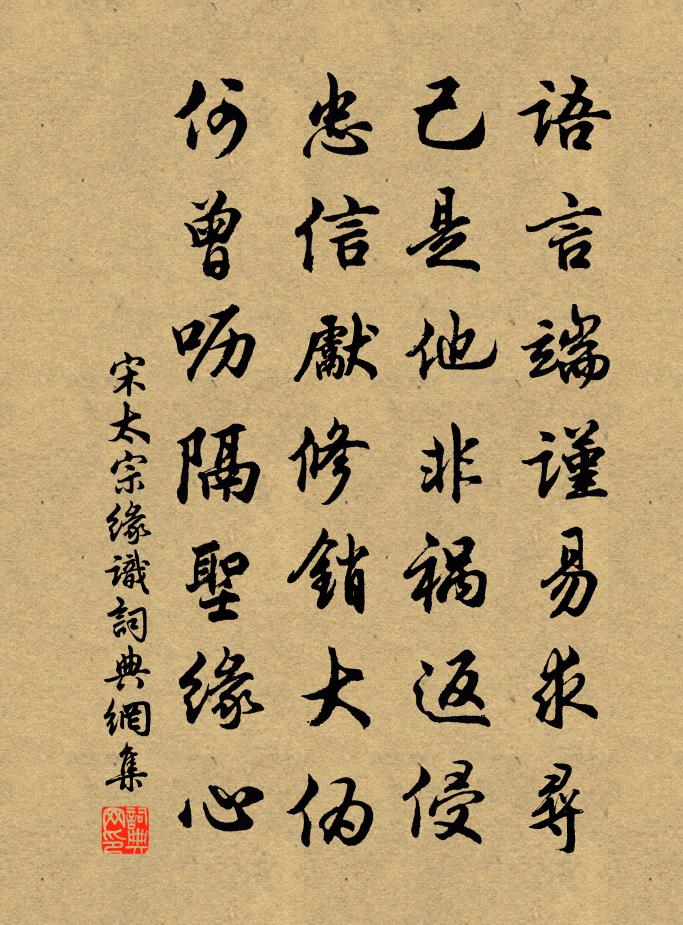 语言端谨易求寻
己是他非祸返侵
忠信献修销大伪
何曾呖隔聖缘心
宋太宗缘識詞典網集
詞典網印